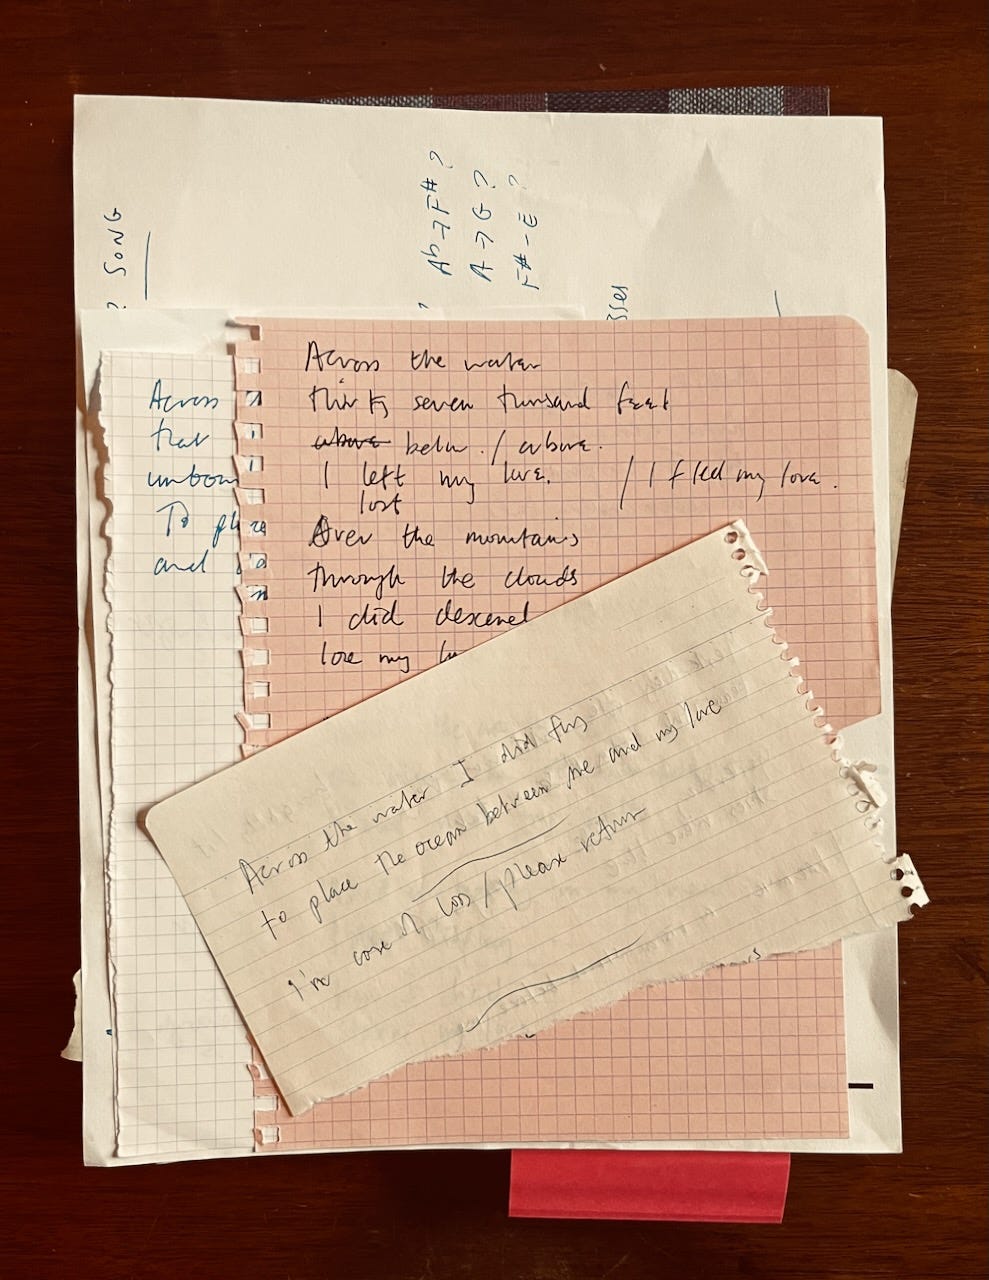 ? SONG
Ab → F# ?
A → G ?
F# - E ?
?
sses
Across
that
unboun
To pla
and
Across the water
thirty seven thousand feet
above below / above.
I left my love. / I fled my love.
lost
Over the mountains
through the clouds
I did descend
lose my
Across the water I did
to place the ocean between me and my love
of loss / please return